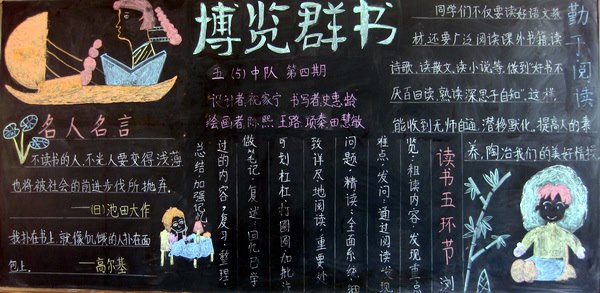 博览群书
五(5)中队 第四期
书写者:史惠龄
勤于阅读
同学们不仅要读好语文教
材,还要广泛阅读课外书籍,读
诗歌、读散文、读小说等,做到“好书不
厌百回读,熟读深思子自知”,这样,
能收到无师自通,潜移默化,提高人的素
养,陶冶我们的美好情操
名人名言
不读书的人,不光人要变得浅薄,
也将被社会的前进步伐所抛弃。
——(日)池田大作
我扑在书上,就像饥饿的人扑在面
包上。——高尔基
读书五环节
浏
览:粗读内容,发现重
难点:发问:通过阅读发现
问题:精读:全面系统细
致详尽地阅读,重要处
可划杠杠,打圈圈,加批注
做笔记:复述:回忆已学
过的内容,复习:整理、
总结,加强记